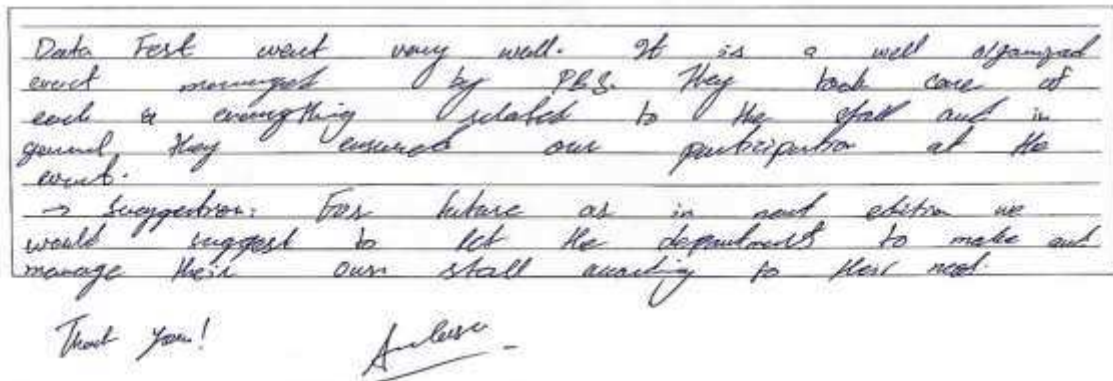 Data Fest went very well. It is a well organized
event managed by PBS. They took care of
each & everything related to the stall and in
general they ensured our participation at the
event.
→ Suggestion: For future as in next edition we
would suggest to let the departments to make and
manage their own stall according to their need.
Thank you!